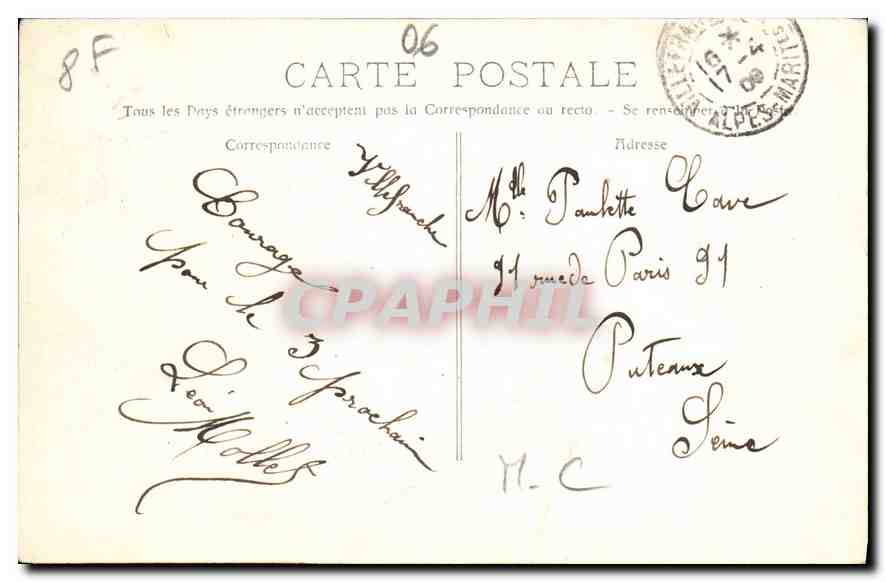 8F
06
CARTE POSTALE
Tous les Pays étrangers n'acceptent pas la Correspondance au recto. - Se renseigner à la Poste
Correspondance
Adresse
Villefranche
Courage
pour le 3 prochain
Léon Mollet
Mlle. Paulette Cave
91 rue de Paris 91
Puteaux
Seine
M-C
CPAPHIL
ALPES-MARITIMES